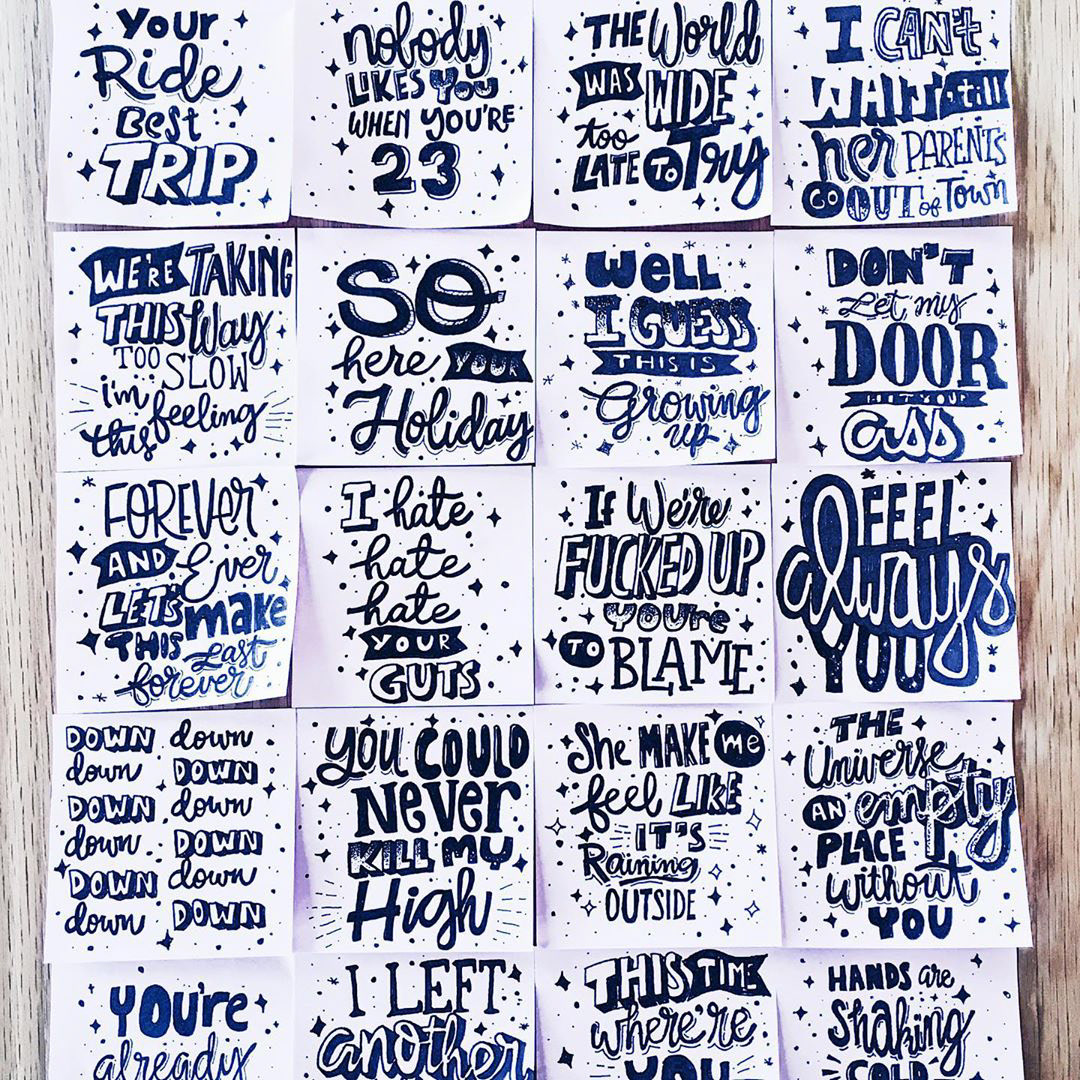 Your
Ride
Best
TRIP
nobody
LIKES YOU
WHEN YOU'RE
23
THE World
WAS WIDE
too
LATE TO Try
I CAN't
WAIT till
her PARENTS
GO OUT of Town
WE'RE TAKING
THIS Way
TOO SLOW
i'm
feeling
this
SO
here YOUR
Holiday
Well
I GUESS
THIS IS
Growing
up
DON'T
Let my
DOOR
HIT YOUR
Ass
FOREVER
AND Ever
LET'S make
THIS Last
forever
I hate
hate
hate
YOUR
GUTS
If We're
FUCKED UP
YOU're
TO BLAME
FEEL
always
YOU
DOWN down
down DOWN
DOWN down
down DOWN
DOWN down
down DOWN
YOU COULD
Never
KILL MY
High
She MAKE me
feel LIKE
IT'S
Raining
OUTSIDE
THE
Universe
AN empty
PLACE
without
YOU
YOU're
already
I LEFT
another
THIS TIME
where're
YOU
HANDS are
Shaking
COLD